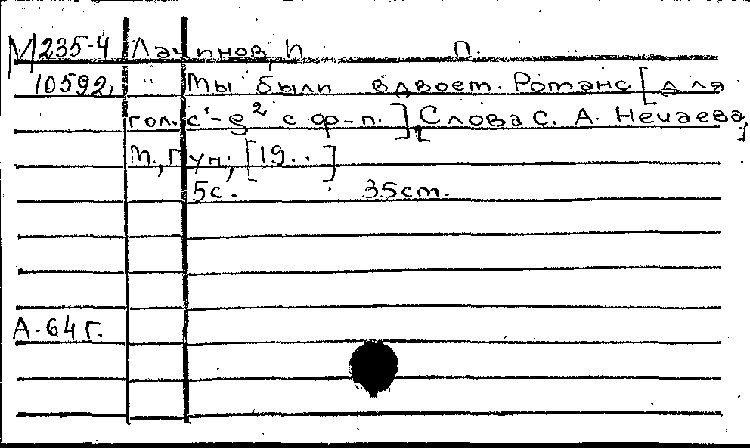 М 235-4 Лачинов, П. П.
10592, " Мы были вдвоем. Романс [для
гол. c¹-g² с ф-п.] [Слова С. А. Нечаева]
М., Гун; [19..]
5с. 35см.
А-64г.